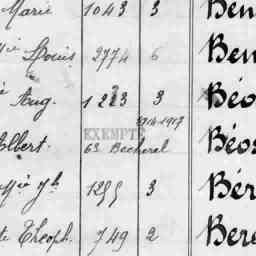 Marie 1043 3 Ben
Mᵉ Louis 2774 6 Ben
Aug. 1223 3 Béo
29.4.1917
EXEMPTÉ
Albert. 63 Becherel Béo
Jʰ 1299 3 Bér
Théoph. 749 2 Bere